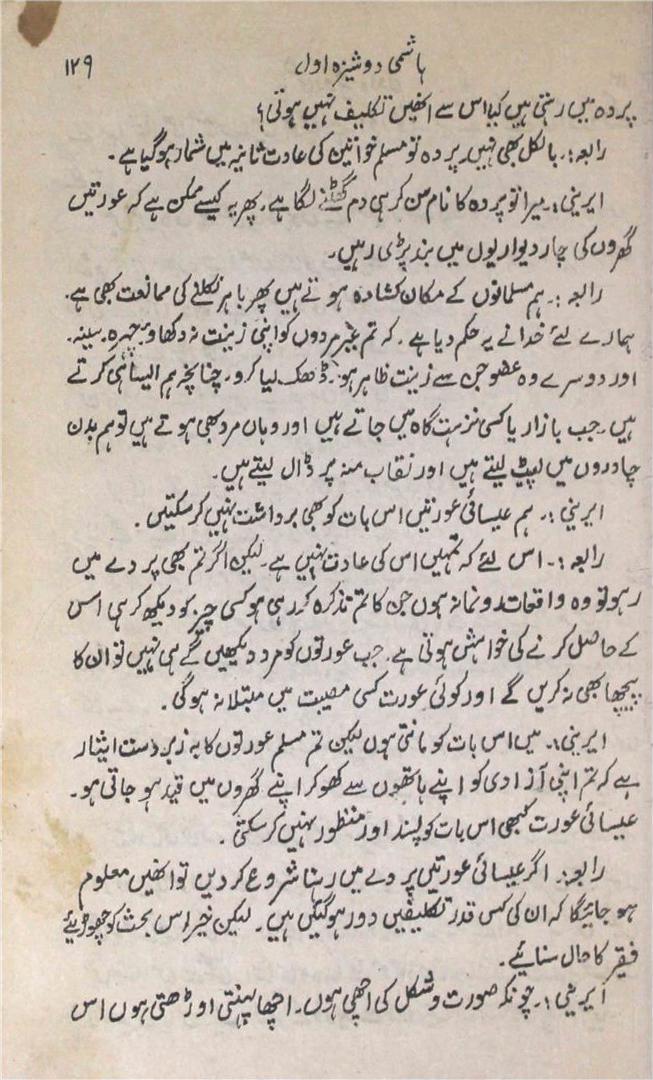 ہاشمی دوشیزہ اول ۱۲۹
پردہ میں رہتی ہیں کیا اس سے انھیں تکلیف نہیں ہوتی؟
رابعہ:۔ بالکل بھی نہیں۔ پردہ تو مسلم خواتین کی عادت ثانیہ میں شمار ہوگیا ہے۔
ایرینی:۔ میرا تو پردہ کا نام سن کر ہی دم گھٹنے لگا ہے۔ پھر یہ کیسے ممکن ہے کہ عورتیں
گھروں کی چار دیواریوں میں بند پڑی رہیں۔
رابعہ:۔ ہم مسلمانوں کے مکان کشادہ ہوتے ہیں پھر باہر نکلنے کی ممانعت بھی ہے۔
ہمارے لئے خدا نے یہ حکم دیا ہے۔ کہ تم غیر مردوں کو اپنی زینت نہ دکھاؤ چہرہ۔ سینہ۔
اور دوسرے وہ عضو جن سے زینت ظاہر ہو۔ ڈھک لیا کرو۔ چنانچہ ہم ایسا ہی کرتے
ہیں۔ جب بازار یا کسی نزہت گاہ میں جاتے ہیں اور وہاں مرد بھی ہوتے ہیں تو ہم بدن
چادروں میں لپیٹ لیتے ہیں اور نقاب منہ پر ڈال لیتے ہیں۔
ایرینی:۔ ہم عیسائی عورتیں اس بات کو بھی برداشت نہیں کر سکتیں۔
رابعہ:۔ اس لئے کہ تمہیں اس کی عادت نہیں ہے۔ لیکن اگر تم بھی پردے میں
رہو تو وہ واقعات رونما نہ ہوں جن کا تم تذکرہ کر رہی ہو کسی چیز کو دیکھ کر ہی اس
کے حاصل کرنے کی خواہش ہوتی ہے۔ جب عورتوں کو مرد دیکھیں گے ہی نہیں تو ان کا
پیچھا بھی نہ کریں گے اور کوئی عورت کسی مصیبت میں مبتلا نہ ہوگی۔
ایرینی:۔ میں اس بات کو مانتی ہوں لیکن تم مسلم عورتوں کا یہ زبردست ایثار
ہے کہ تم اپنی آزادی کو اپنے ہاتھوں سے کھو کر اپنے گھروں میں قید ہو جاتی ہو۔
عیسائی عورت کبھی اس بات کو پسند اور منظور نہیں کر سکتی۔
رابعہ:۔ اگر عیسائی عورتیں پردے میں رہنا شروع کر دیں تو انھیں معلوم
ہو جائیگا کہ ان کی کس قدر تکلیفیں دور ہو گئی ہیں۔ لیکن خیر اس بحث کو چھوڑیئے
فقیر کا حال سنائیے۔
ایرینی:۔ چونکہ صورت و شکل کی اچھی ہوں۔ اچھا پہنتی اوڑھتی ہوں اس